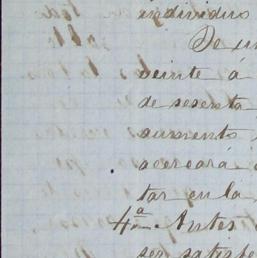 individuo
De un
veinte á
de sesenta
aumento
acercará
tar en la
4ª Antes
ser satisfe